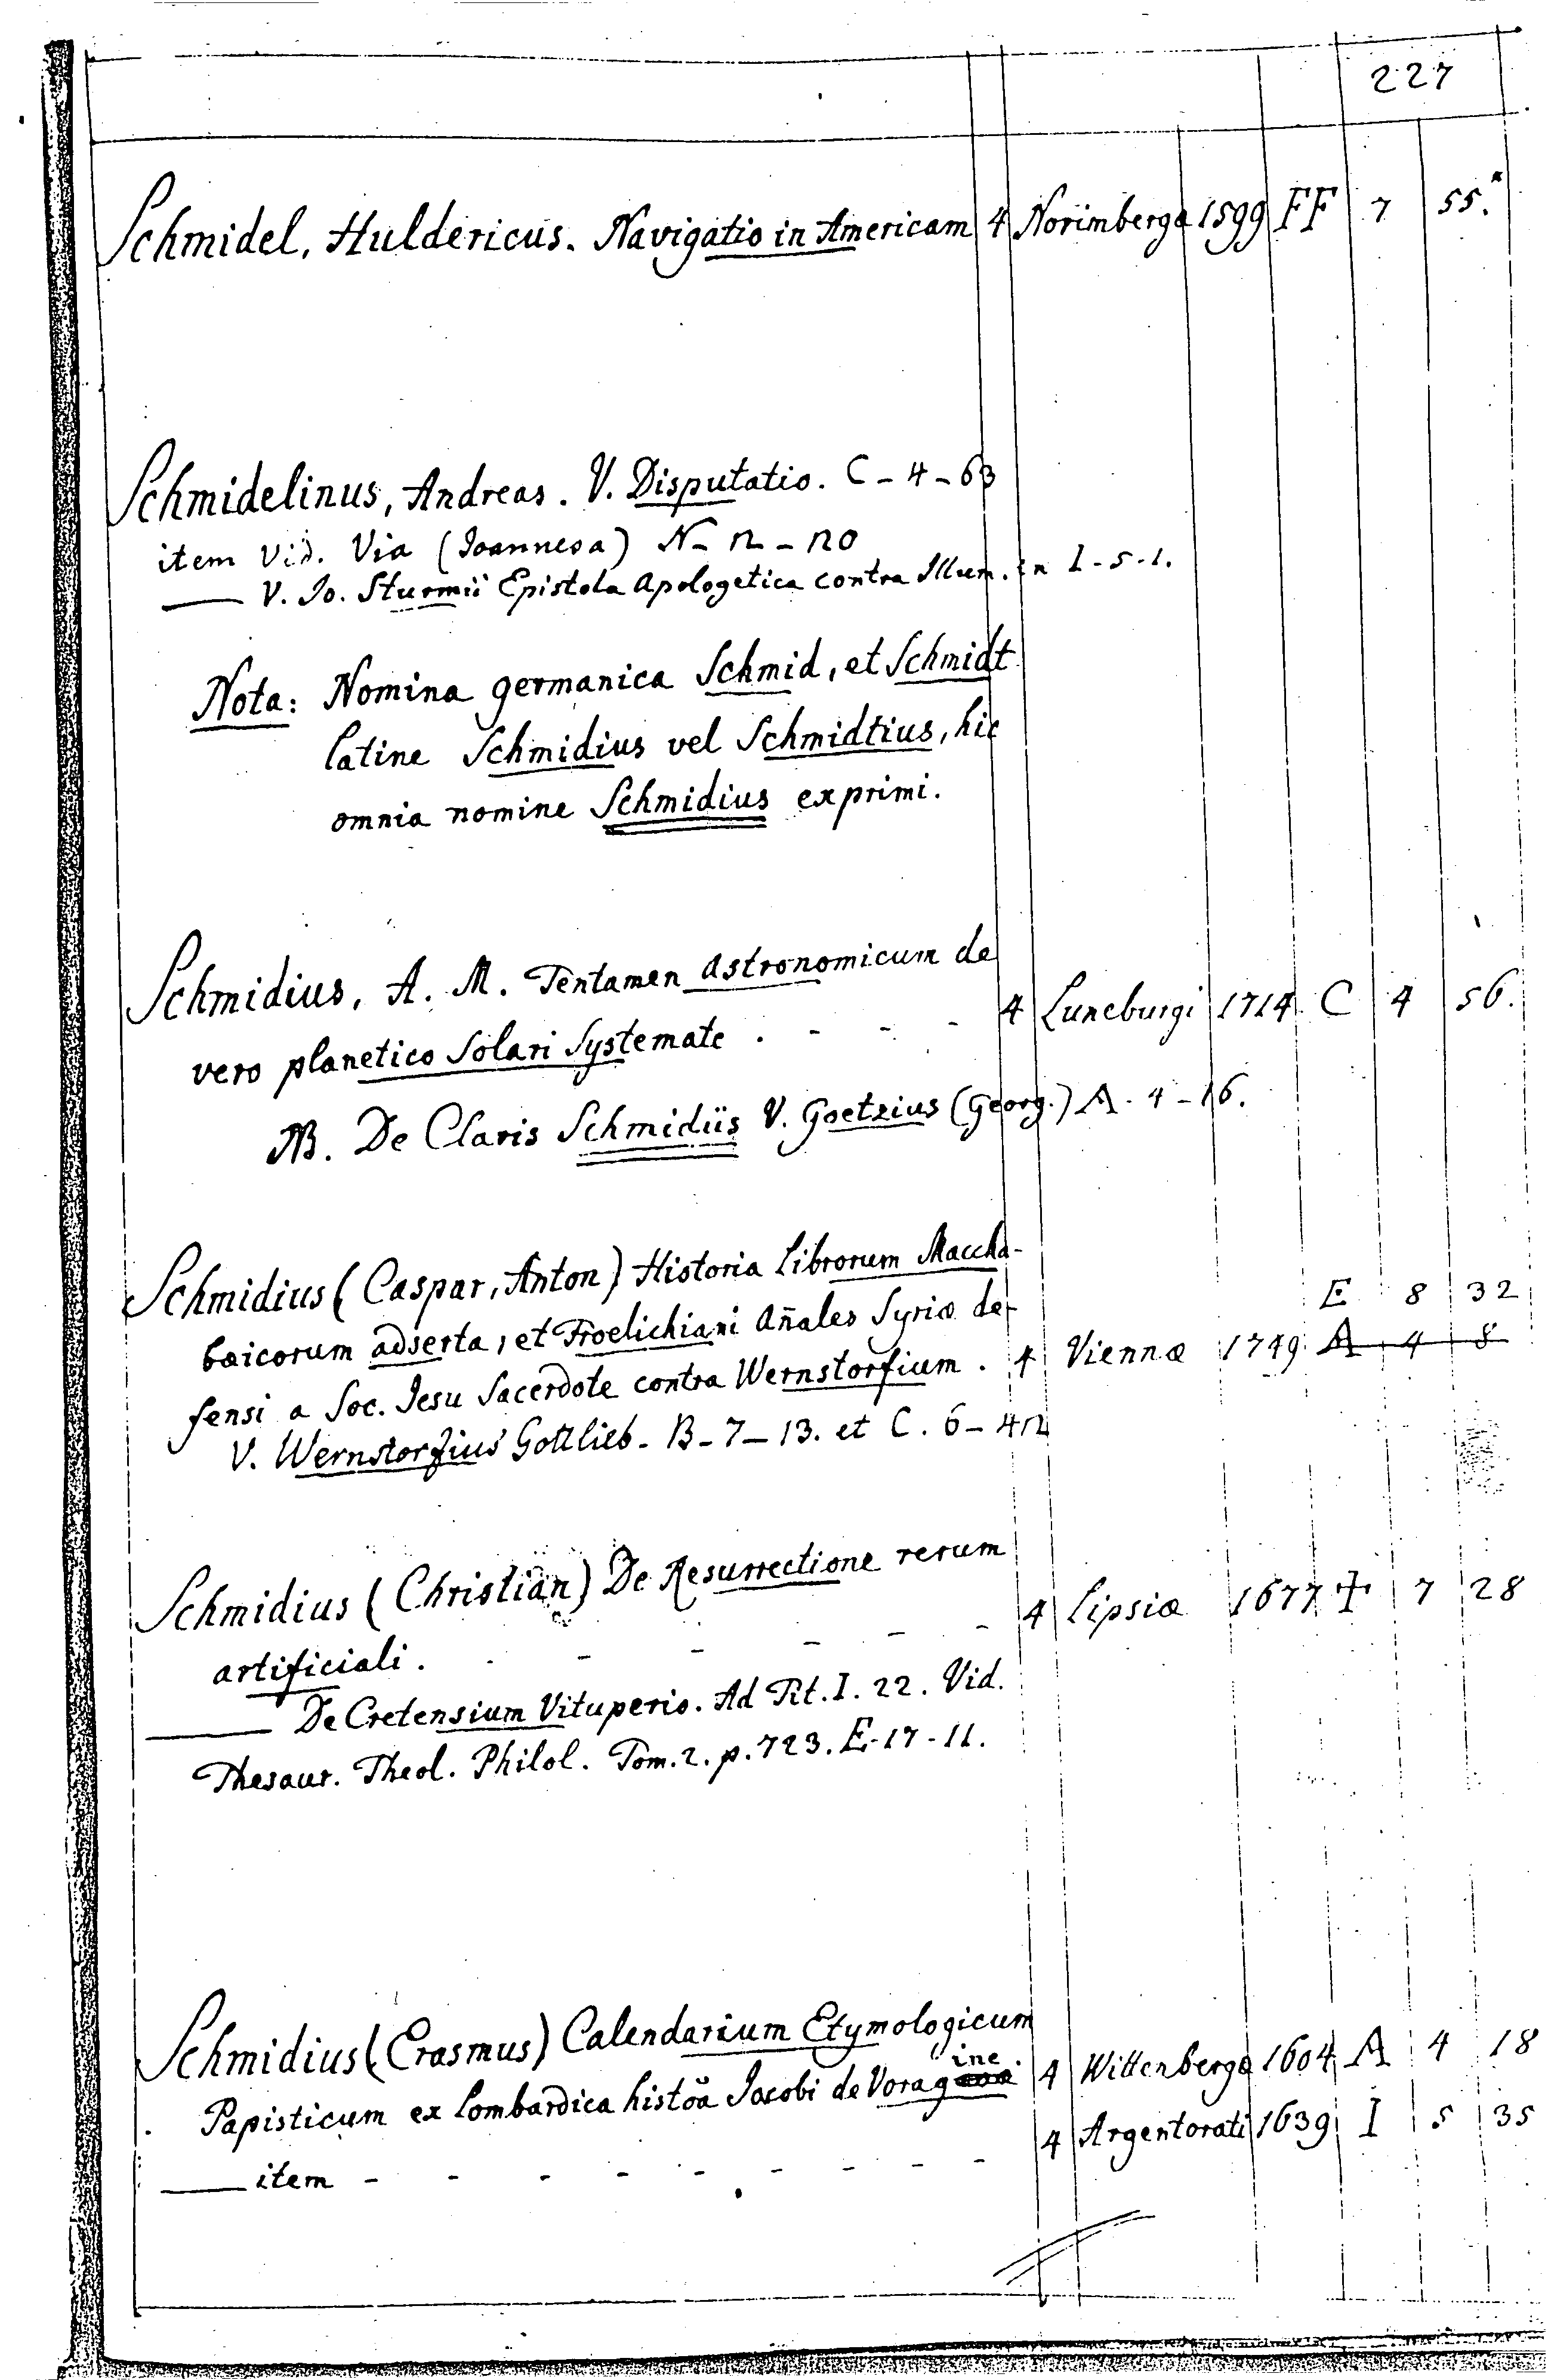 227
Schmidel, Huldericus. Navigatio in Americam 4 Norimbergæ 1599 FF 7 55.*
Schmidelinus, Andreas. V. Disputatio. C - 4 - 63
item Vid. Via (Joannes a) N - 12 - 120
—— V. Jo. Sturmii Epistola Apologetica contra Illum. in I - 5 - 1.
Nota: Nomina germanica Schmid, et Schmidt
latine Schmidius vel Schmidtius, hic
omnia nomine Schmidius exprimi.
Schmidius, A. M. Tentamen astronomicum de
vero planetico Solari Systemate . - - - 4 Luneburgi 1714 C 4 56.
NB. De Claris Schmidiis V. Goetzius (Georg.) A - 4 - 16.
Schmidius (Caspar, Anton) Historia Librorum Maccha-
E 8 32
baicorum adserta, et Froelichiani Añales Syriæ de-
fensi a Soc. Jesu Sacerdote contra Wernstorfium . 4 Viennæ 1749 A 4 8
V. Wernstorfius Gottlieb - B - 7 - 13. et C. 6 - 42
Schmidius (Christian) De Resurrectione rerum
artificiali . - - - - - - 4 Lipsiæ 1677 ☩ 7 28
—— De Cretensium Vituperio. Ad Tit. I. 22. Vid.
Thesaur. Theol. Philol. Tom. 2. p. 723. E - 17 - 11.
Schmidius (Erasmus) Calendarium Etymologicum
Papisticum ex Lombardica histõa Jacobi de Voragine 4 Wittenbergæ 1604 A 4 18
—— item - - - - - - - - - 4 Argentorati 1639 I 5 35